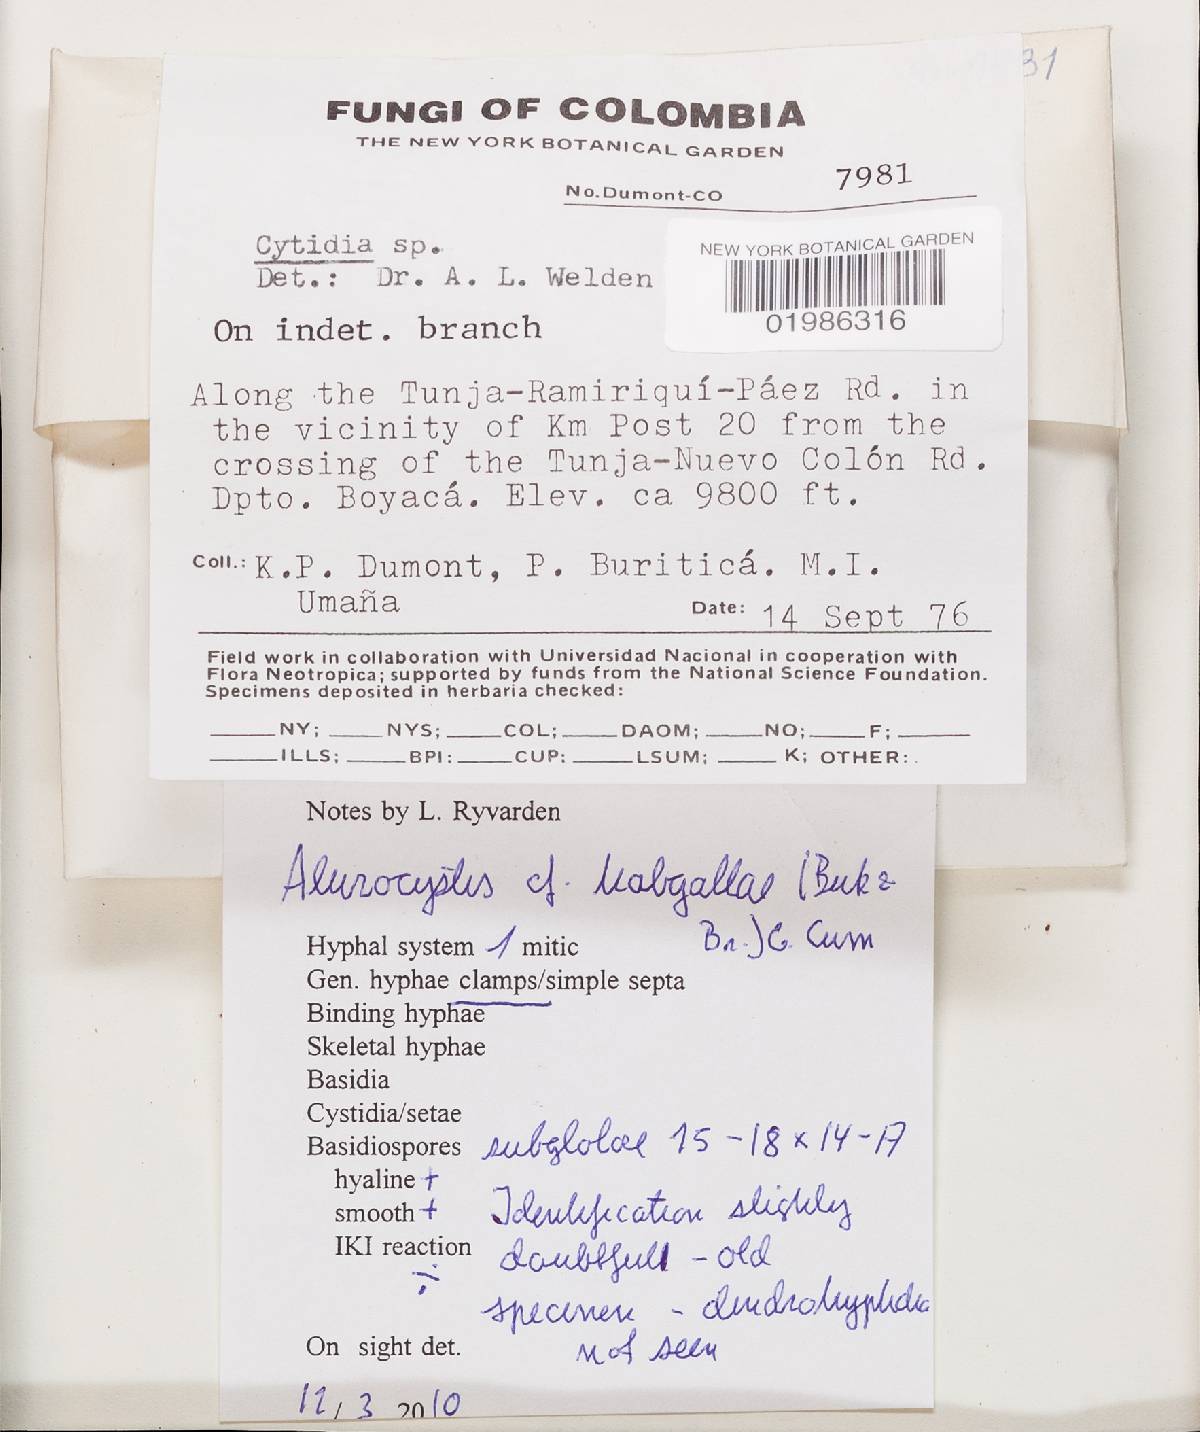 31
FUNGI OF COLOMBIA
THE NEW YORK BOTANICAL GARDEN
No.Dumont-CO 7981
Cytidia sp.
Det.: Dr. A. L. Welden
NEW YORK BOTANICAL GARDEN
01986316
On indet. branch
Along the Tunja-Ramiriquí-Páez Rd. in
the vicinity of Km Post 20 from the
crossing of the Tunja-Nuevo Colón Rd.
Dpto. Boyacá. Elev. ca 9800 ft.
Coll.: K.P. Dumont, P. Buriticá. M.I.
Umaña
Date: 14 Sept 76
Field work in collaboration with Universidad Nacional in cooperation with
Flora Neotropica; supported by funds from the National Science Foundation.
Specimens deposited in herbaria checked:
_____NY; _____NYS; _____COL; _____DAOM; _____NO; _____F; _____
_____ILLS; _____BPI: _____CUP: _____LSUM; _____ K; OTHER:.
Notes by L. Ryvarden
cf. (Berk &
Br.) G. Cunn
Hyphal system 1 mitic
Gen. hyphae clamps/simple septa
Binding hyphae
Skeletal hyphae
Basidia
Cystidia/setae
Basidiospores subglobose 15-18 x 14-17
hyaline +
smooth + Identification slightly
IKI reaction ÷ doubtfull - old
specimen - dendrohyphidia
On sight det. not seen
12/3 2010